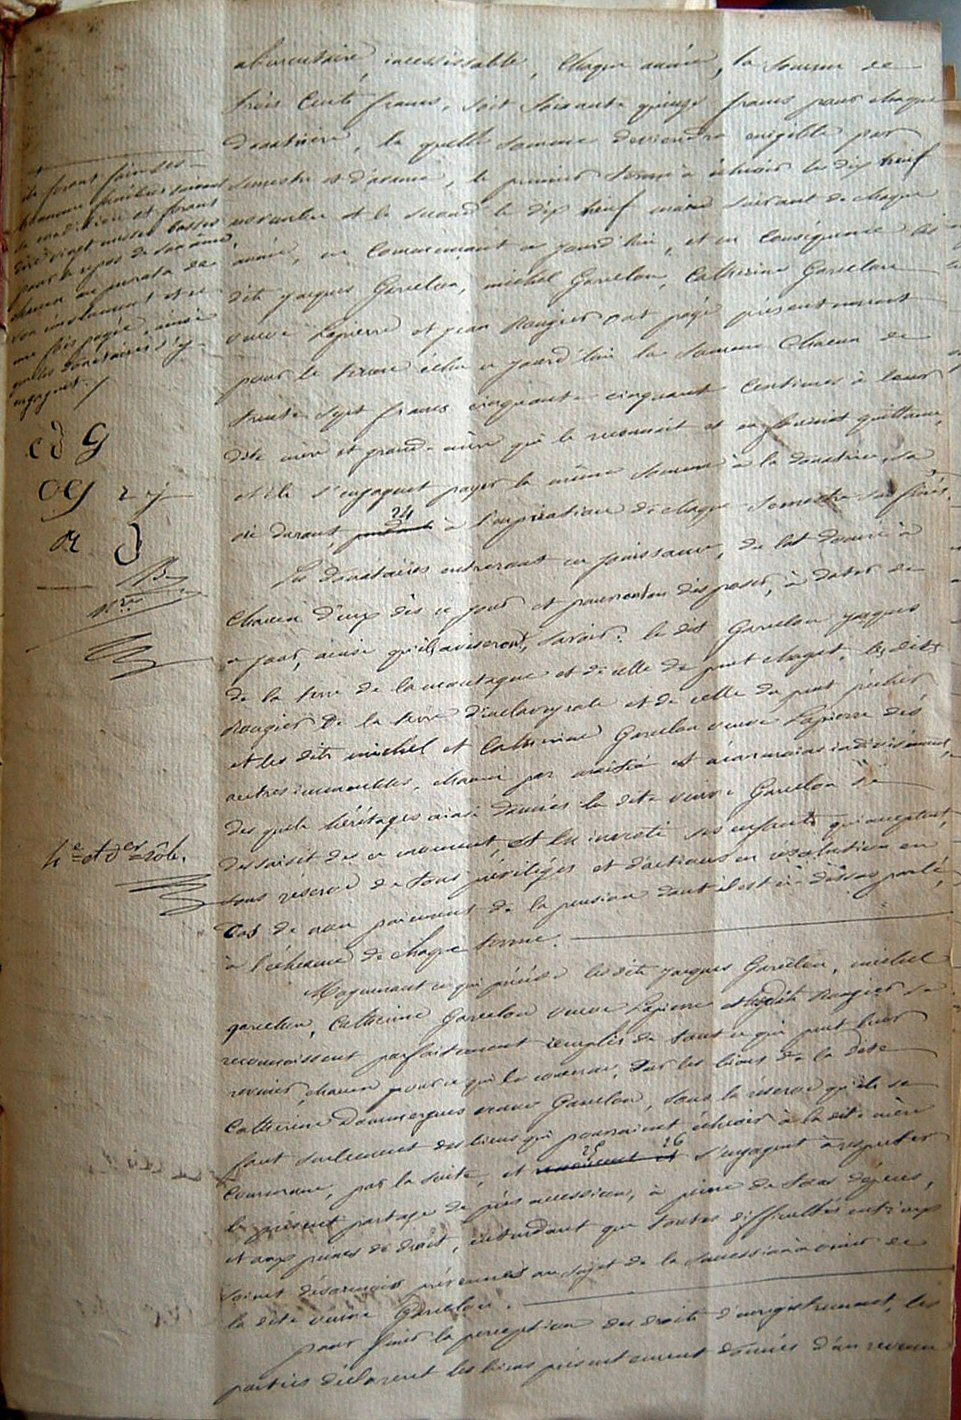 alimentaire incessible, chaque année, la somme de
trois cents francs, soit soixante quinze francs pour chaque
donataire, la quelle somme deviendra exigible par
semestre et d'avance, le premier terme à échoir le dix neuf
novembre et le second le dix neuf mai suivant de chaque
année, en commençant ce jourd'hui, et en conséquence les
dits jacques Garcelon, michel Garcelon, Catherine Garcelon
veuve Lapierre et jean Rougier ont payé présentement
pour le terme échu ce jourd'hui la somme chacun de
trente sept francs cinquante cinquante centimes à leur
dite mère et grand-mère qui le reconnait et en fournit quittance,
et ils s'engagent payer la même somme à la donatrice, sa
vie durant, 24 à l'expiration de chaque semestre sus fixés.
Les donataires entreront en jouissance, du lot donné à
chacun d'eux dès ce jour et pourront en disposer, à dater de
ce jour, ainsi qu'ils aviseront, savoir: le dit Garcelon jacques
de la terre de la montagne et de celle de , les dits
Rougier de la terre et de celle du
et les dits michel et Catherine Garcelon veuve Lapierre des
autres immeubles, chacun par moitié et néanmoins indivisément,
des quels héritages ainsi donnés la dite veuve Garcelon s'e
dessaisit dès ce moment et en investi ses enfants qui acceptent,
sous réserve de tous privilèges et d'actions en résolution en
Cas de non paiement de la pension dont il est ci dessus parlé,
à l'échéance de chaque terme.
Moyennant ce qui précède les dits jacques Garcelon, michel
garcelon, Catherine Garcelon veuve Lapierre et ledit Rougier se
reconnoissent parfaitement remplis de tout ce qui peut leur
revenir chacun pour ce qui le concerne, sur les biens de la dite
Catherine Dommergues veuve Garcelon, sous la réserve qu'ils se
font seulement des biens qui pourraient échoir à la dite mère
Commune, par la suite, et 25 26 s'engagent à respecter
le présent partage de pré-succession, à peine de tous dépens,
et aux peines de droit, entendant que toutes difficultés entr'eux
soient désormais prévenues au sujet de la succession à venir de
la dite veuve Garcelon.
pour fixer la perception des droits d'enregistrement, les
parties déclarent les biens présentement donnés d'un revenu
et feront
semblables
la condition et feront
dire vingt messes basses
pour le repos de son âme,
chacun au prorata de
son émolument et
une fois payée, ainsi
que les donataires s'y
engagent./
C d G
OG 2 j
JR D
4e et der rôle.